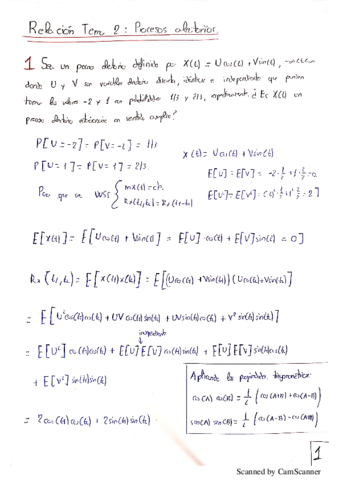 Relación Tema 2: Procesos aleatorios
1 Sea un proceso aleatorio definido por X(t) = U cos(t) + V sin(t),
donde U y V son variables aleatorias discretas, idénticas e independientes que pueden
tomar los valores -2 y 1 con probabilidades 1/3 y 2/3, respectivamente. ¿Es X(t) un
proceso aleatorio estacionario en sentido amplio?
P[U=-2] = P[V=-2] = 1/3
P[U=1] = P[V=1] = 2/3
X(t) = U cos(t) + V sin(t)
E[U] = E[V] = -2·1/3 + 1·2/3 = 0
Para que sea WSS { mx(t) = cte.
Rx(t1,t2) = Rx(t1-t2)
E[X(t)] = E[U cos(t) + V sin(t)] = E[U]·cos(t) + E[V] sin(t) = 0
Rx(t1,t2) = E[X(t1)X(t2)] = E[(U cos(t1) + V sin(t1))(U cos(t2) + V sin(t2))]
= E[U² cos(t1)cos(t2) + UV cos(t1)sin(t2) + UV sin(t1)cos(t2) + V² sin(t1)sin(t2)]
= E[U²] cos(t1)cos(t2) + E[U]E[V] cos(t1)sin(t2) + E[U]E[V] sin(t1)cos(t2)
+ E[V²] sin(t1)sin(t2)
= 2cos(t1)cos(t2) + 2sin(t1)sin(t2)
Aplicando las propiedades trigonométricas:
cos(A) cos(B) = 1/2 (cos(A+B) + cos(A-B))
sin(A) sin(B) = 1/2 (cos(A-B) - cos(A+B))
1
Scanned by CamScanner